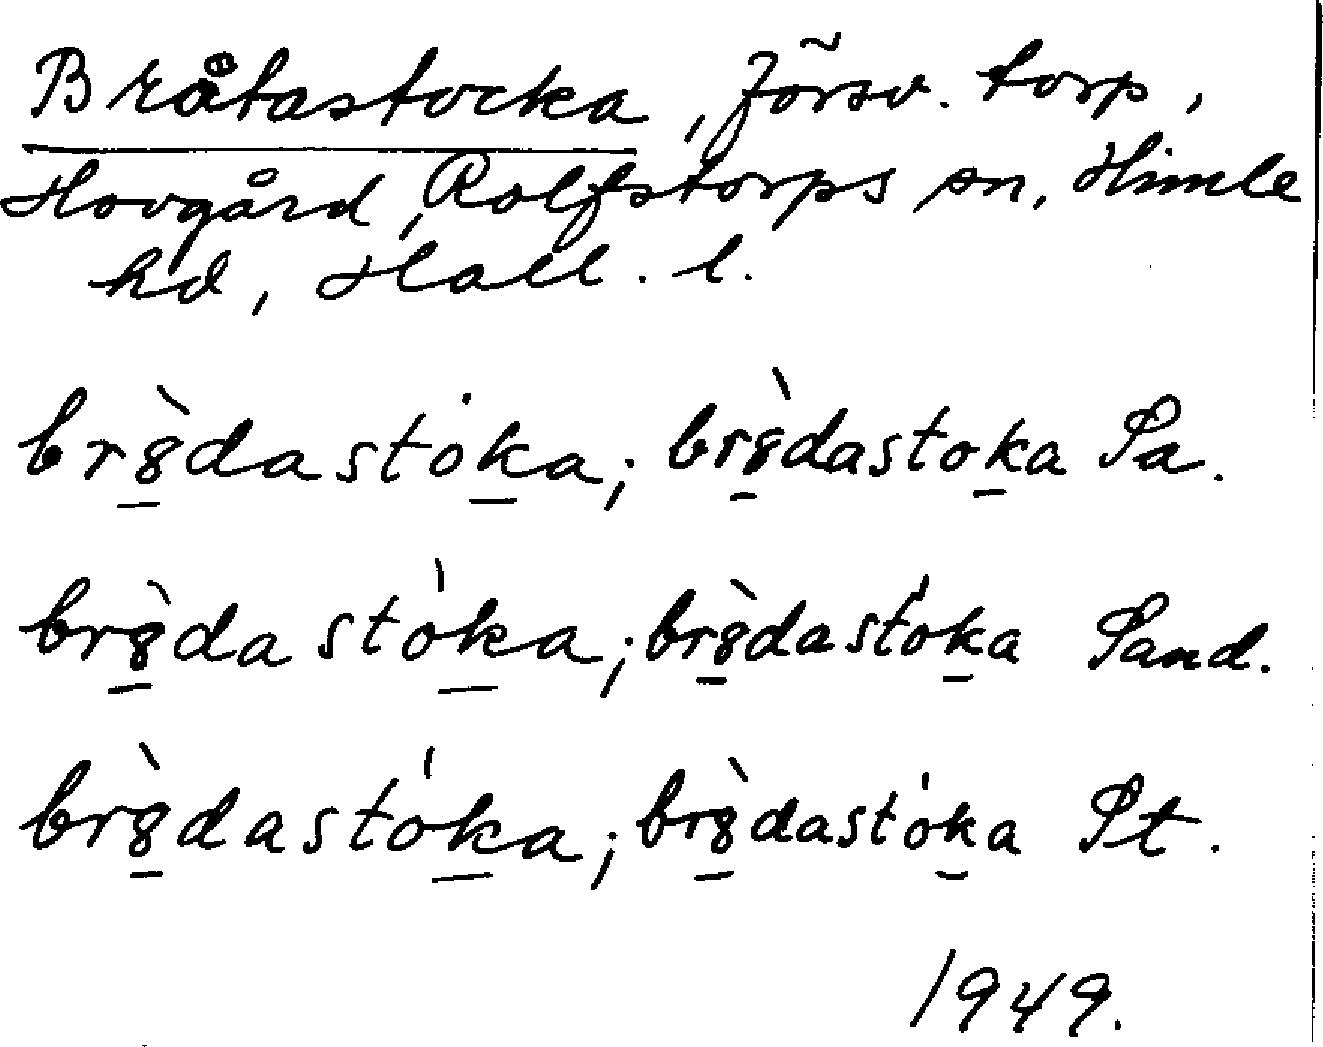 Bråtastocka, försv. torp,
Hovgård, Rolfstorps sn, Himle
hd, Hall. l.
br8̠̀dastȯk̠a; br8̠̀dastok̠a Sa.
br8̠̀dastók̠a; br8̠̀dastók̠a Sand.
br8̠̀dastók̠a; br8̠̀dastók̠a St.
1949.